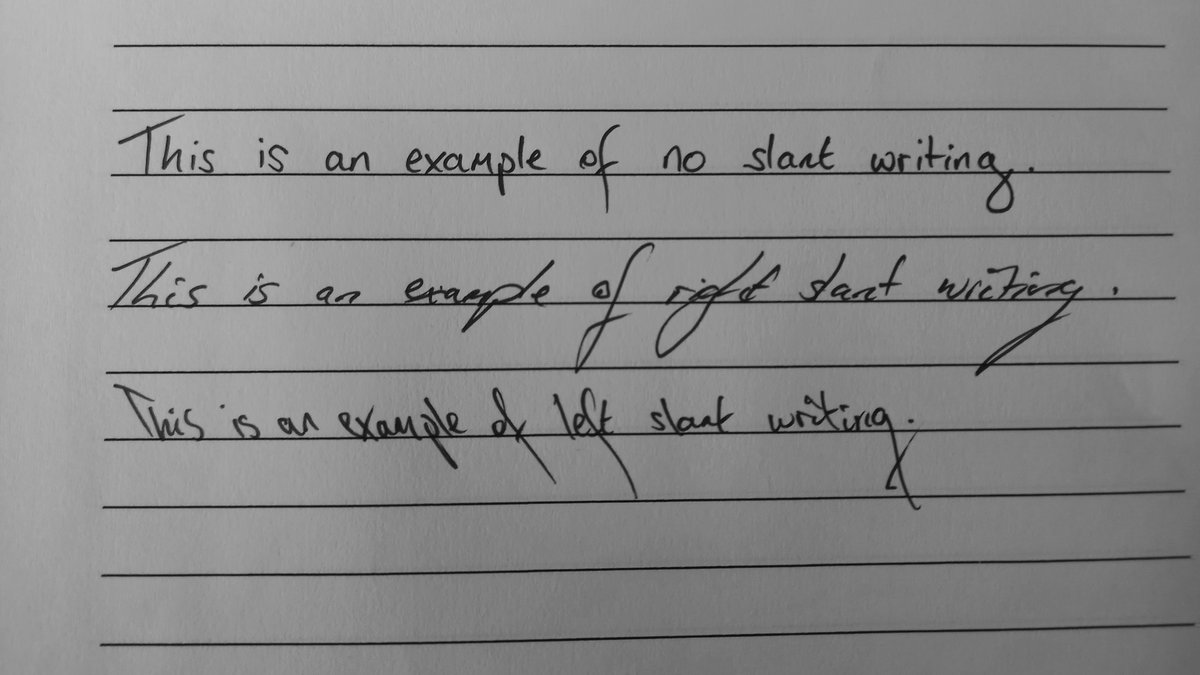 This is an example of no slant writing.
This is an example of right slant writing.
This is an example of left slant writing.